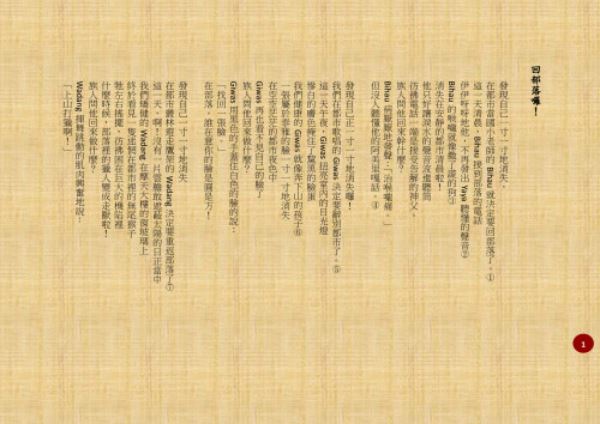 回部落囉！
發現自己一寸一寸地消失
在都市當國小老師的 Bihau 決定要回部落了。①
這一天清晨，Bihau 接到部落的電話
伊伊呀呀地他，不再發出 Yaya 聽懂的聲音②
Bihau 的喉嚨就像斷了線的狗③
消失在安靜的都市清晨啦！
他只好讓淚水的聲音流進聽筒
彷彿電話一端是接受告解的神父。
族人問他回來幹什麼？
Bihau 地發聲：「治喉嚨囉。」
但沒人聽懂他的阿美里嘎話。④
發現自己正一寸一寸地消失囉！
我們在都市歌唱的 Giwas 決定要辭別都市了。⑤
這一天午夜，Giwas 扭亮室內的日光燈
慘白的膚色掩住了黧黑的臉蛋
我們健康的 Giwas 就像奔下山的孩子⑥
一張屬於泰雅的臉一寸一寸地消失
在空空茫茫的都市夜色中
Giwas 再也看不見自己的臉了
族人問他回來做什麼？
Giwas 用黑色的手蓋住白色的臉的說：
「找回一張臉。」
在部落，誰在意你的臉是圓是方！
發現自己一寸一寸地消失
在都市叢林遊走鷹架的 Wadang 決定要重返部落了⑦
這一天，啊！沒有一片雲膽敢遮蔽太陽的日正當中
我們矯健的 Wadang 在摩天大樓的窗玻璃上
終於看見一隻迷惘在都市裡的無尾猴子
牠左右搖擺，彷彿困在巨大的機陷裡
什麼時候，部落裡的獵人變成走獸啦！
族人問他回來做什麼？
Wadang 揮舞跳動的肌肉興奮地說：
「上山打獵啊！」
1